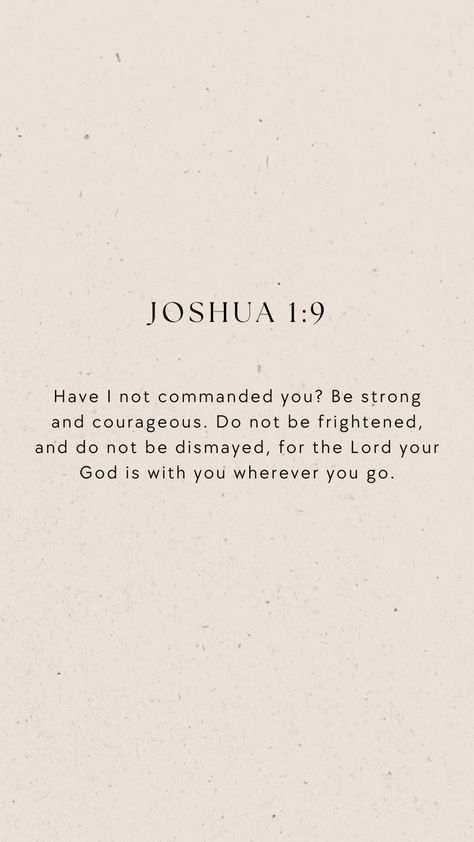 JOSHUA 1:9
Have I not commanded you? Be strong
and courageous. Do not be frightened,
and do not be dismayed, for the Lord your
God is with you wherever you go.